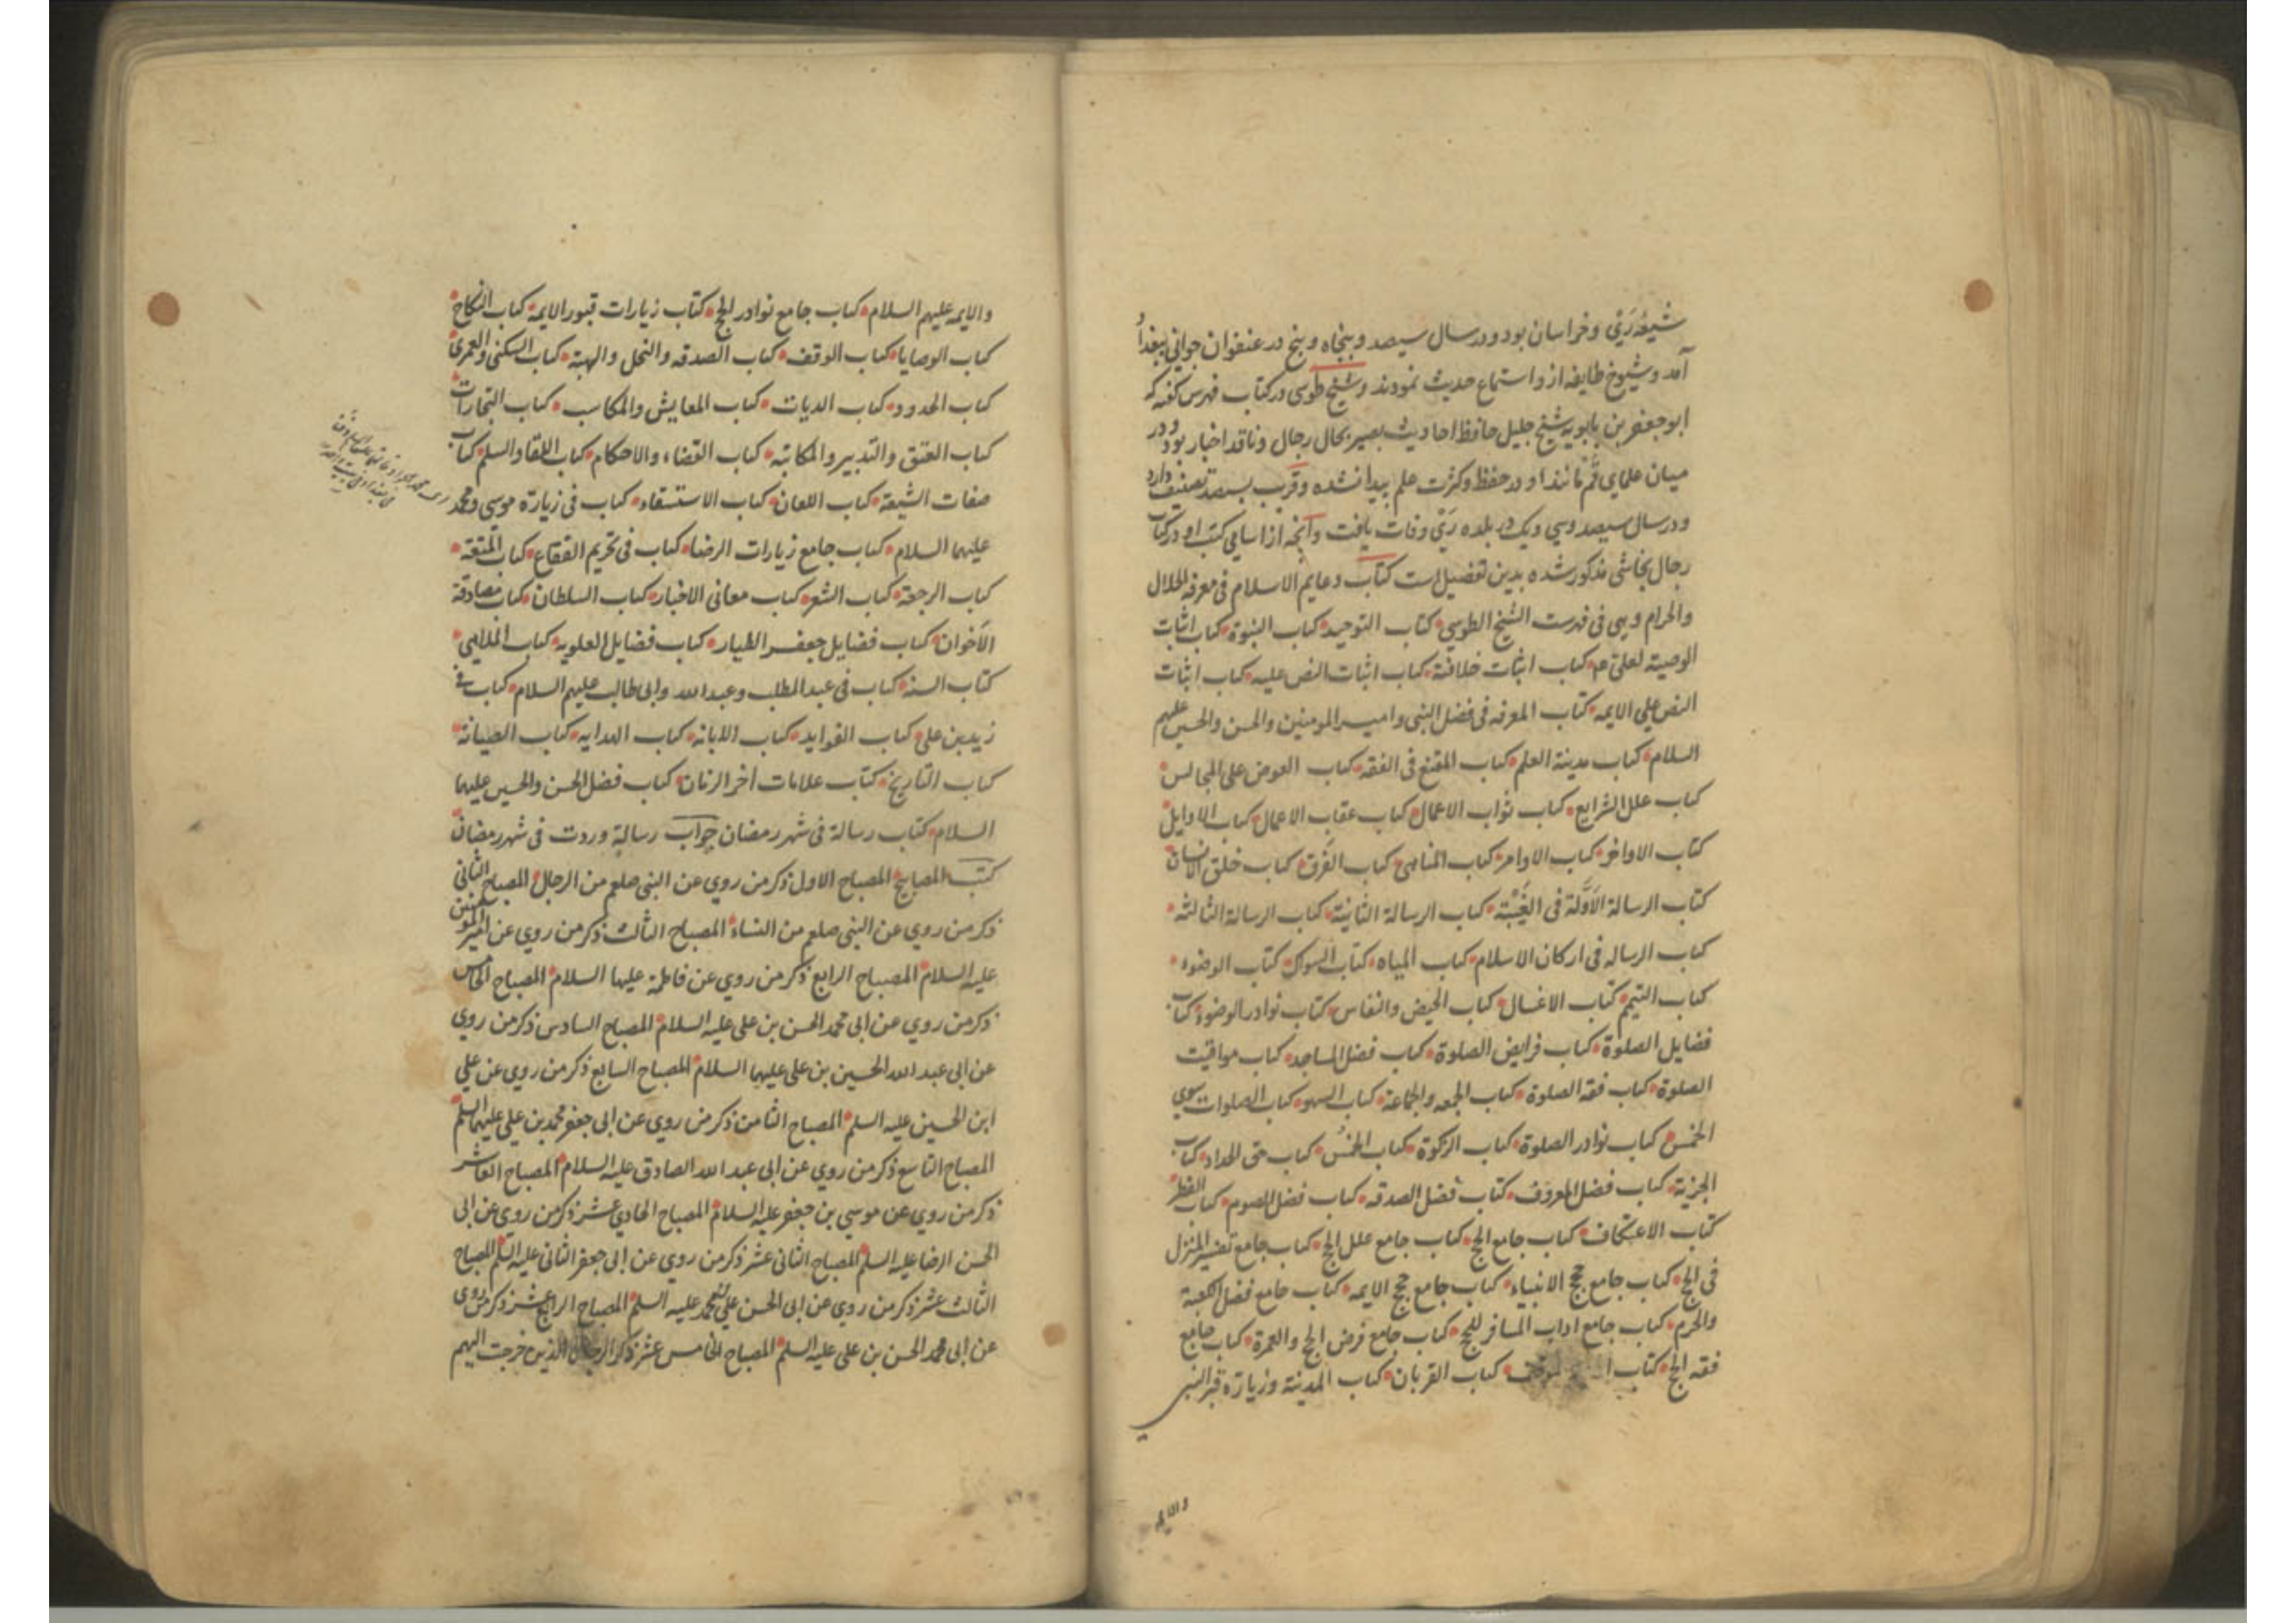 شیعهٔ رَیْ وخراسان بود ودر سال سیصد وپنجاه وپنج در عنفوان جوانی ببغداد
آمد وشیوخ طایفه از و استماع حدیث نمودند وشیخ طوسی در کتاب فهرس کفته که
ابو جعفر بن بابویه شیخ جلیل حافظ احادیث بصیر بحال رجال وناقد اخبار بود ودر
میان علمای قُم مانند او در حفظ وکثرت علم پیدا نشده وقریب بسیصد تصنیف دارد
ودر سال سیصد وسی ویک در بلده رَیْ وفات یافت وآنچه از اسامی کتب او در کتاب
رجال نجاشی مذکور شده بدین تفضیل است کتاب دعایم الاسلام فی معرفه الحلال
والحرام وهی فی فهرست الشیخ الطوسی کتاب التوحید کتاب النبوة کتاب اثبات
الوصیة لعلی ع م کتاب اثبات خلافته کتاب اثبات النص علیه کتاب اثبات
النص علی الایمه کتاب المعرفه فی فضل النبی وامیر المومنین والحسن والحسین علیهم
السلام کتاب مدینة العلم کتاب المقنع فی الفقه کتاب العوض علی المجالس
کتاب علل الشرایع کتاب ثواب الاعمال کتاب عقاب الاعمال کتاب الاوایل
کتاب الاواخر کتاب الاوامر کتاب المناهی کتاب الفَرق کتاب خلق الانسان
کتاب الرسالة الاَوَّلة فی الغَیْبَة کتاب الرسالة الثانیة کتاب الرسالة الثالثه
کتاب الرساله فی ارکان الاسلام کتاب المیاه کتاب السواک کتاب الوضوء
کتاب التیمم کتاب الاغسال کتاب الحیض والنفاس کتاب نوادر الوضوء کتاب
فضایل الصلوة کتاب فرایض الصلوة کتاب فضل المساجد کتاب مواقیت
الصلوة کتاب فقه الصلوة کتاب الجمعه والجماعة کتاب السهو کتاب الصلوات سوی
الخمس کتاب نوادر الصلوة کتاب الزکوة کتاب الخمس کتاب حق الجداد کتاب
الجزیة کتاب فضل المعروف کتاب فضل الصدقه کتاب فضل الصوم کتاب الفطر
کتاب الاعتکاف کتاب جامع الحج کتاب جامع علل الحج کتاب جامع تفسیر المنزل
فی الحج کتاب جامع حج الانبیاء کتاب جامع حج الایمه کتاب جامع فضل الکعبة
والحرم کتاب جامع اداب المسافر للحج کتاب جامع فرض الحج والعمرة کتاب جامع
فقه الحج کتاب الموقف کتاب القربان کتاب المدینة وزیارة قبر النبی
والایمه
والایمه علیهم السلام کتاب جامع نوادر الحج کتاب زیارات قبور الایمه کتاب النکاح
کتاب الوصایا کتاب الوقف کتاب الصدقه والنحل والهبة کتاب السکنی والعمری
کتاب الحدود کتاب الدیات کتاب المعایش والمکاسب کتاب التجارات
کتاب العتق والتدبیر والمکاتبه کتاب القضاء والاحکام کتاب اللقاء والسلم کتاب
صفات الشیعة کتاب اللعان کتاب الاستسقاء کتاب فی زیارة موسی ومحمد
علیهما السلام کتاب جامع زیارات الرضا کتاب فی تحریم الفقاع کتاب المتعة
کتاب الرجعة کتاب الشعر کتاب معانی الاخبار کتاب السلطان کتاب مصادقة
الاَخوان کتاب فضایل جعفر الطیار کتاب فضایل العلویه کتاب الملاهی
کتاب السنة کتاب فی عبد المطلب وعبد الله وابی طالب علیهم السلام کتاب فی
زید بن علی کتاب الفواید کتاب الابانه کتاب الهدایه کتاب الضیافة
کتاب التاریخ کتاب علامات اخر الزمان کتاب فضل الحسن والحسین علیهما
السلام کتاب رسالة فی شهر رمضان جواب رسالة وردت فی شهر رمضان
کتب المصابیح المصباح الاول ذکر من روی عن النبی صلعم من الرجال المصباح الثانی
ذکر من روی عن النبی صلعم من النساء المصباح الثالث ذکر من روی عن امیر المومنین
علیه السلام المصباح الرابع ذکر من روی عن فاطمة علیها السلام المصباح الخامس
ذکر من روی عن ابی محمد الحسن بن علی علیه السلام المصباح السادس ذکر من روی
عن ابی عبد الله الحسین بن علی علیهما السلام المصباح السابع ذکر من روی عن علی
ابن الحسین علیه السلم المصباح الثامن ذکر من روی عن ابی جعفر محمد بن علی علیهما السلم
المصباح التاسع ذکر من روی عن ابی عبد الله الصادق علیه السلام المصباح العاشر
ذکر من روی عن موسی بن جعفر علیه السلام المصباح الحادی عشر ذکر من روی عن ابی
الحسن الرضا علیه السلم المصباح الثانی عشر ذکر من روی عن ابی جعفر الثانی علیه السلم المصباح
الثالث عشر ذکر من روی عن ابی الحسن علی بن محمد علیه السلم المصباح الرابع عشر ذکر من روی
عن ابی محمد الحسن بن علی علیه السلم المصباح الخامس عشر ذکر الرجال الذین خرجت الیهم